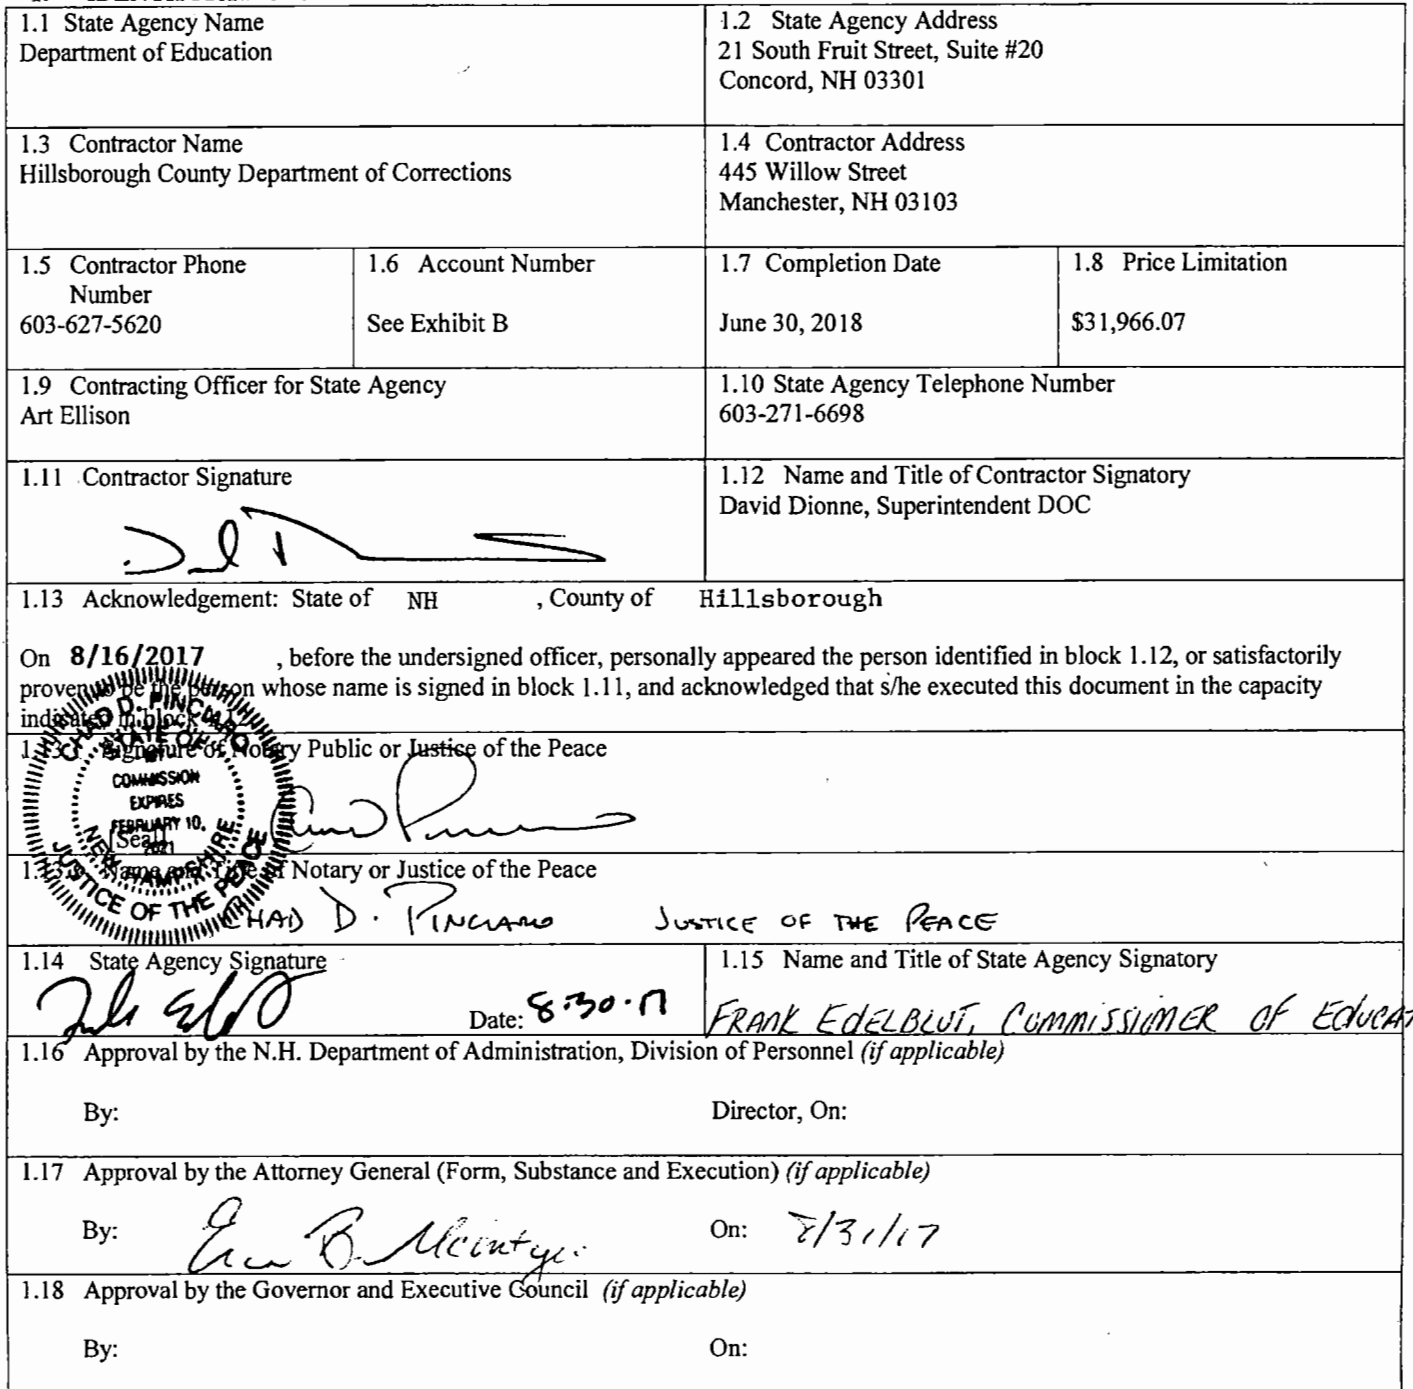 1.1 State Agency Name
Department of Education
1.2 State Agency Address
21 South Fruit Street, Suite #20
Concord, NH 03301
1.3 Contractor Name
Hillsborough County Department of Corrections
1.4 Contractor Address
445 Willow Street
Manchester, NH 03103
1.5 Contractor Phone
Number
603-627-5620
1.6 Account Number
See Exhibit B
1.7 Completion Date
June 30, 2018
1.8 Price Limitation
$31,966.07
1.9 Contracting Officer for State Agency
Art Ellison
1.10 State Agency Telephone Number
603-271-6698
1.11 Contractor Signature
1.12 Name and Title of Contractor Signatory
David Dionne, Superintendent DOC
1.13 Acknowledgement: State of NH , County of Hillsborough
On 8/16/2017 , before the undersigned officer, personally appeared the person identified in block 1.12, or satisfactorily
proven to be the person whose name is signed in block 1.11, and acknowledged that s/he executed this document in the capacity
indicated in block 1.12.
Signature of Notary Public or Justice of the Peace
CHAD D. PINCIARO
STATE OF
MY
COMMISSION
EXPIRES
FEBRUARY 10,
2021
[Seal]
NEW HAMPSHIRE
JUSTICE OF THE PEACE
Name and Title of Notary or Justice of the Peace
CHAD D. PINCIARO JUSTICE OF THE PEACE
1.14 State Agency Signature
Date: 8.30.17
1.15 Name and Title of State Agency Signatory
FRANK EDELBLUT, COMMISSIONER OF EDUCAT
1.16 Approval by the N.H. Department of Administration, Division of Personnel (if applicable)
By: Director, On:
1.17 Approval by the Attorney General (Form, Substance and Execution) (if applicable)
By: B. McIntyre On: 8/31/17
1.18 Approval by the Governor and Executive Council (if applicable)
By: On: